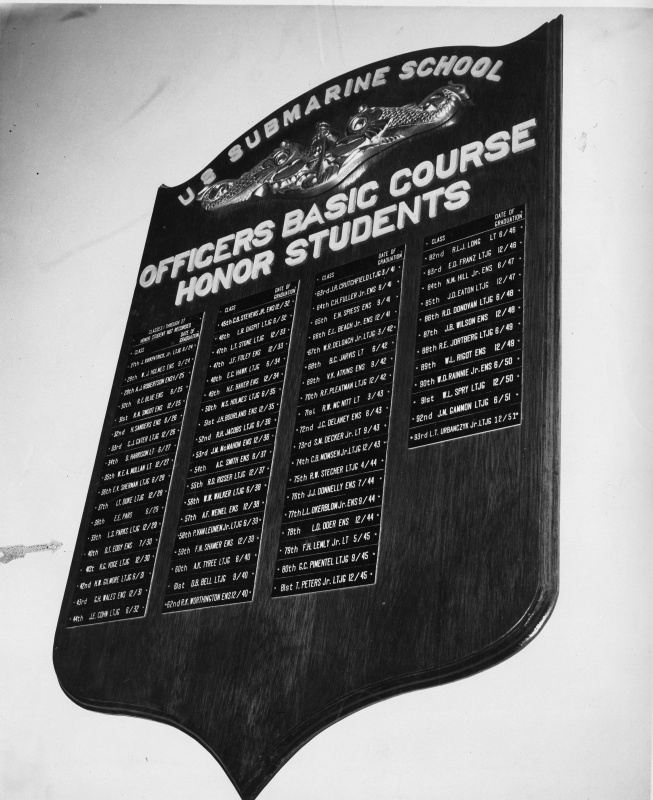 US SUBMARINE SCHOOL
OFFICERS BASIC COURSE
HONOR STUDENTS
CLASSES 1 THROUGH 27
HONOR STUDENT NOT RECORDED
CLASS DATE OF GRADUATION
29th W.J. HOLMES ENS
29th A.J. ROBERTSON ENS 4/25
30th R.E. BLUE ENS 6/25
31st R.N. SMOOT ENS 12/25
32nd N. SANDERS ENS 6/26
33rd C.J. CATER LTJG 12/26
34th S. HARRISON LT 6/27
35th W.E.A. MULLAN LT 12/27
36th F.X. SHERMAN LTJG 6/28
37th LT. DUKE LTJG 12/28
38th E.E. PARE 6/29
39th L.S. PARKS LTJG 12/29
40th D.T. EDDY ENS 7/30
41st R.G. VOGE LTJG 12/30
42nd H.W. GILMORE LTJG 6/31
43rd G.H. WALES ENS 12/31
44th J.E. COHN LTJG 6/32
CLASS DATE OF GRADUATION
45th C.B. STEVENS JR. ENS 12/32
46th L.R. DASPIT LTJG 6/33
47th L.T. STONE LTJG 12/33
47th J.F. FOLEY ENS 12/33
48th E.C. HAWK LTJG 6/34
49th H.E. BAKER ENS 12/34
50th W.S. HOLMES LTJG 6/35
51st J.H. BOURLAND ENS 12/35
52nd R.H. JACOBS LTJG 6/36
53rd J.M. McMAHON ENS 12/36
54th A.C. SMITH ENS 6/37
55th R.D. RISSER LTJG 12/37
56th W.W. WALKER LTJG 6/38
57th A.F. WEINEL ENS 12/38
58th P. VAN LEUNEN Jr. LTJG 6/39
59th F.N. SHAMER ENS 12/39
60th A.K. TYREE LTJG 6/40
61st D.B. BELL LTJG 9/40
62nd R.K. WORTHINGTON ENS 12/40
CLASS DATE OF GRADUATION
63rd J.R. CRUTCHFIELD LTJG 3/41
64th C.H. FULLER Jr. ENS 6/41
65th E.M. SPIESS ENS 9/41
66th E.L. BEACH Jr. ENS 12/41
67th W.R. DELOACH Jr. LTJG 3/42
68th B.C. JARVIS LT 6/42
69th V.K. ATKINS ENS 9/42
70th R.F. PLEATMAN LTJG 12/42
71st R.W. MC NITT LT 3/43
72nd J.C. DELANEY ENS 6/43
73rd S.M. DECKER Jr. LT 9/43
74th C.B. MOMSEN Jr. LTJG 12/43
75th R.W. STECHER LTJG 4/44
76th J.J. DONNELLY ENS 7/44
77th L.L. OKERBLOM Jr. ENS 9/44
78th L.D. ODER ENS 12/44
79th F.H. LEMLY Jr. LT 5/45
80th G.C. PIMENTEL LTJG 9/45
81st T. PETERS Jr. LTJG 12/45
CLASS DATE OF GRADUATION
82nd R.L.J. LONG LT 6/46
83rd E.D. FRANZ LTJG 12/46
84th N.M. HILL Jr. ENS 6/47
85th J.D. EATON LTJG 12/47
86th R.D. DONOVAN LTJG 6/48
87th J.B. WILSON ENS 12/48
88th R.E. JORTBERG LTJG 6/49
89th W.L. RIGOT ENS 12/49
90th W.O. RAINNIE Jr. ENS 6/50
91st W.L. SPRY LTJG 12/50
92nd J.M. GAMMON LTJG 6/51
93rd L.T. URBANCZYK Jr. LTJG 12/51